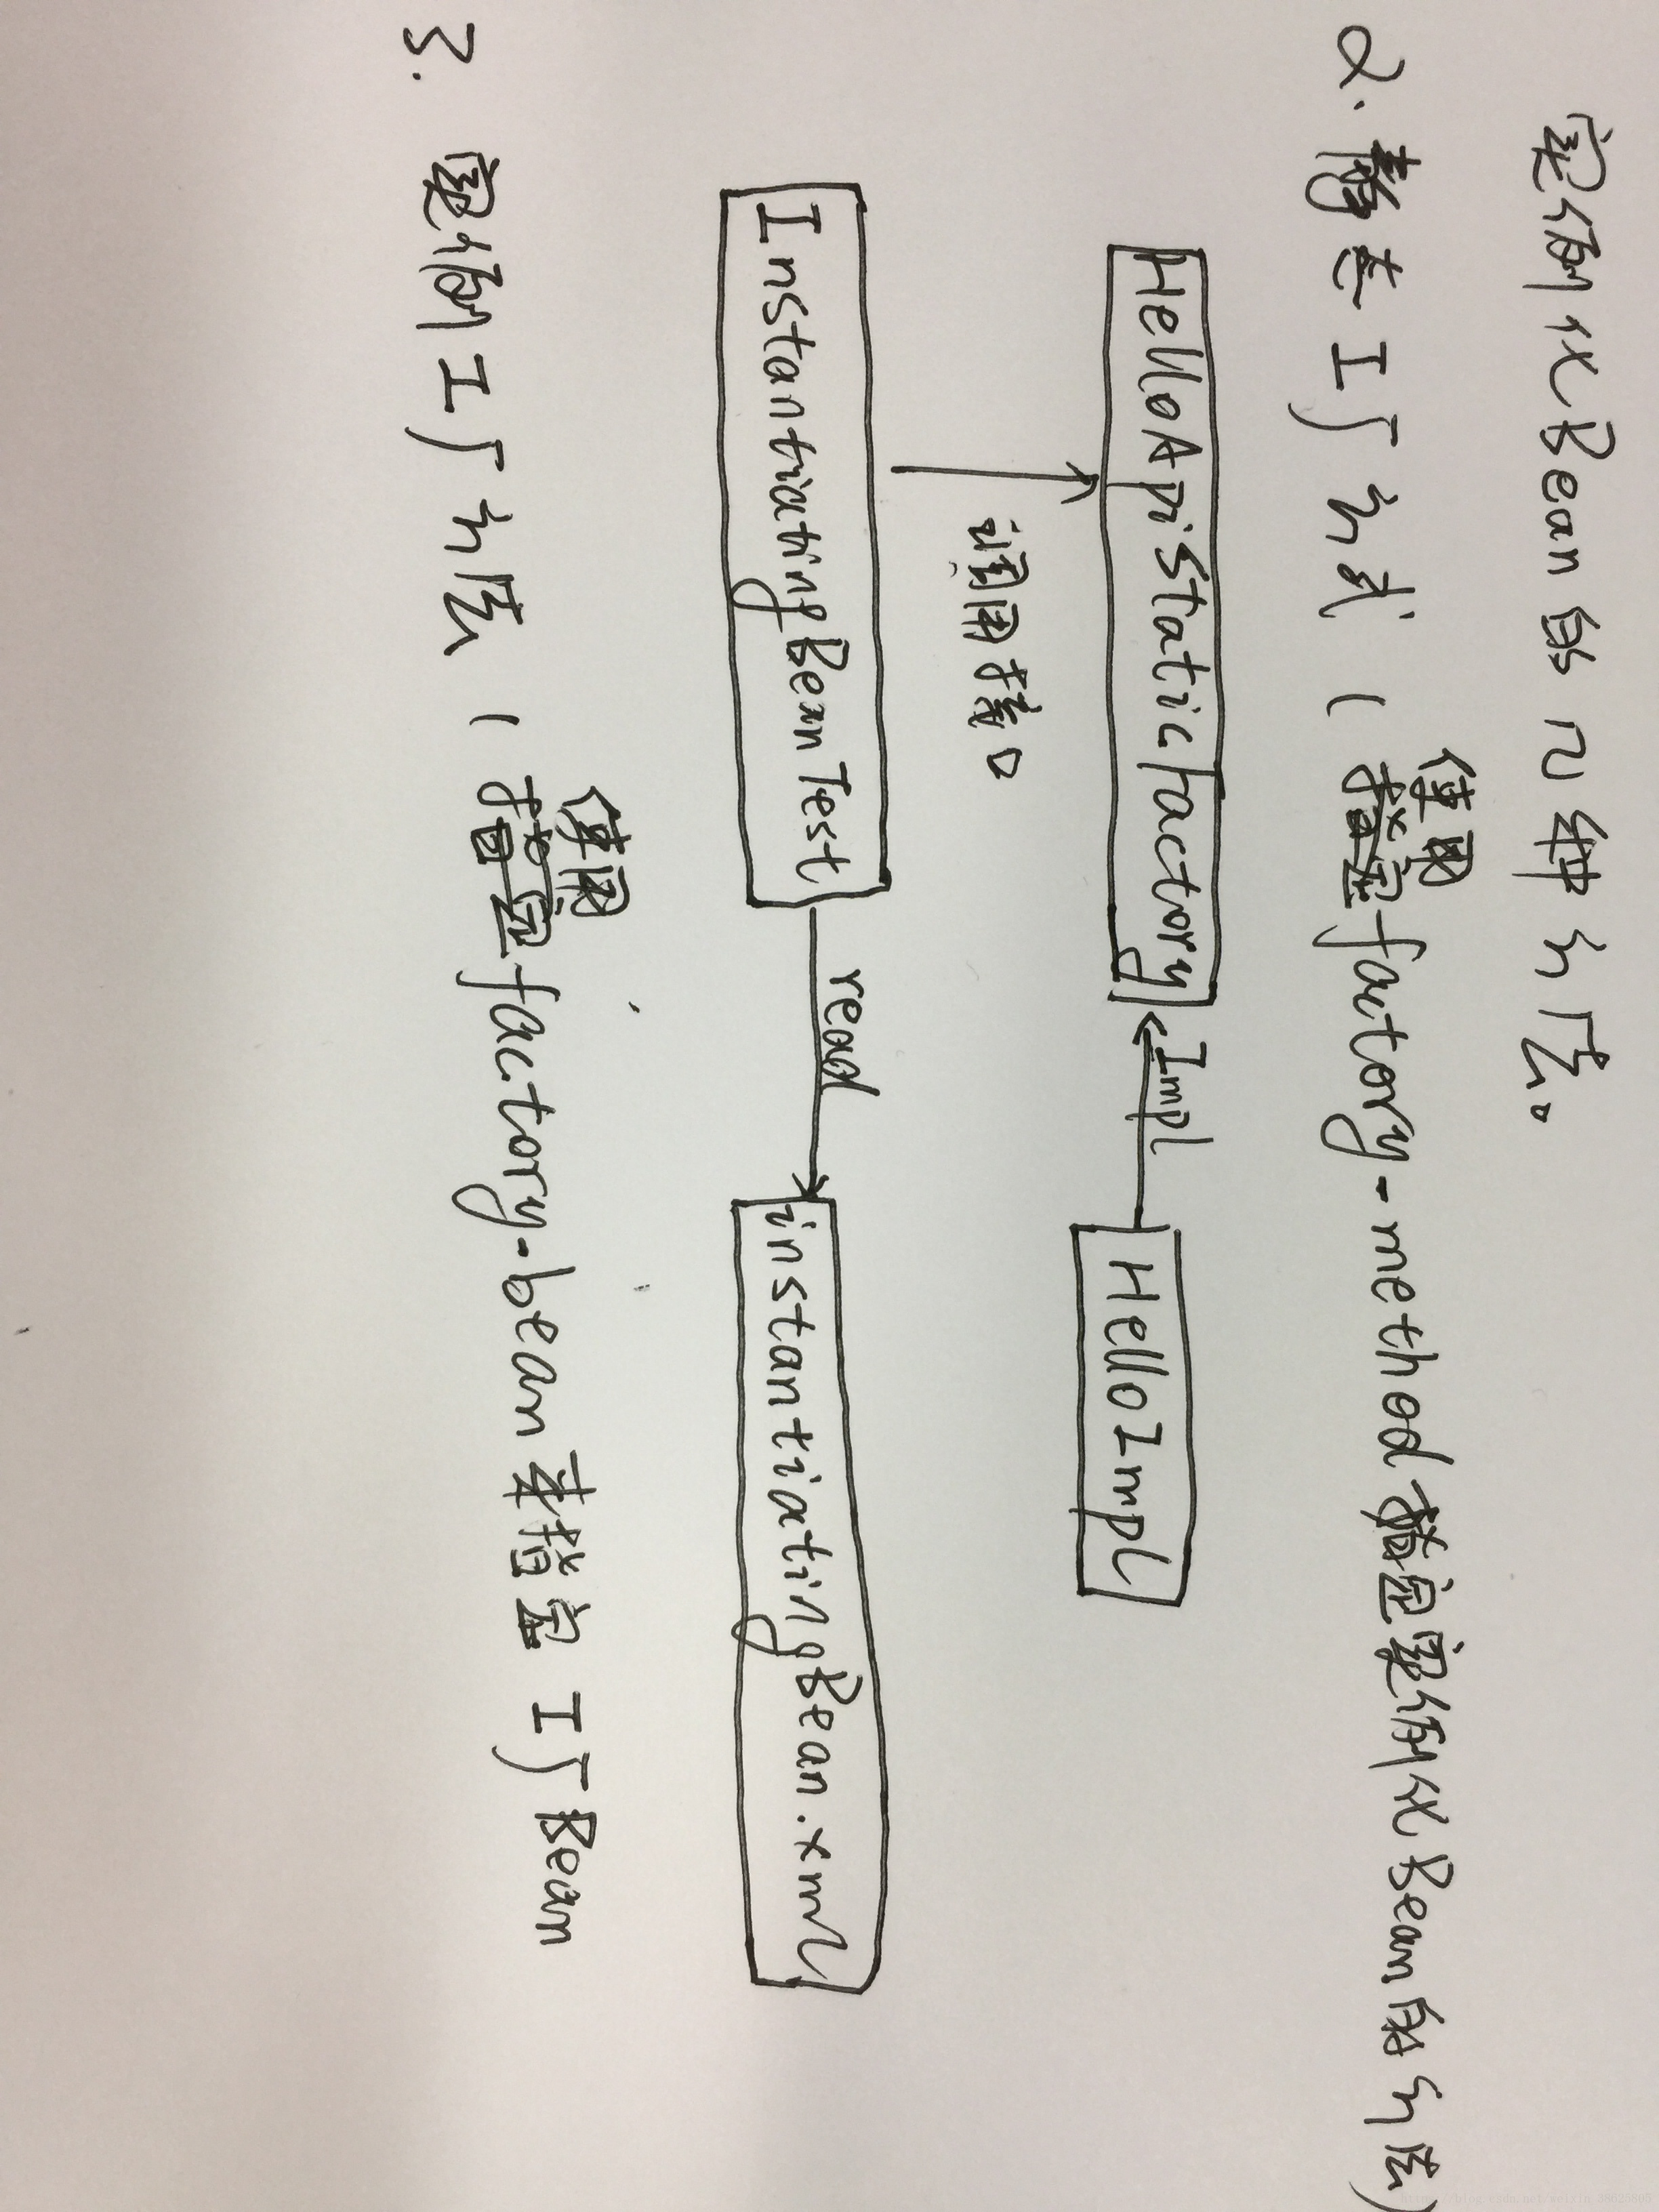 实例化Bean的几种方法。
2. 静态工厂方式 (使用factory-method指定实例化Bean的方法)
HelloApiStaticFactory
Impl
HelloImpl
调用接口
InstantiatingBeanTest
read
instantiatingBean.xml
3. 实例工厂方法 (使用factory-bean来指定工厂Bean